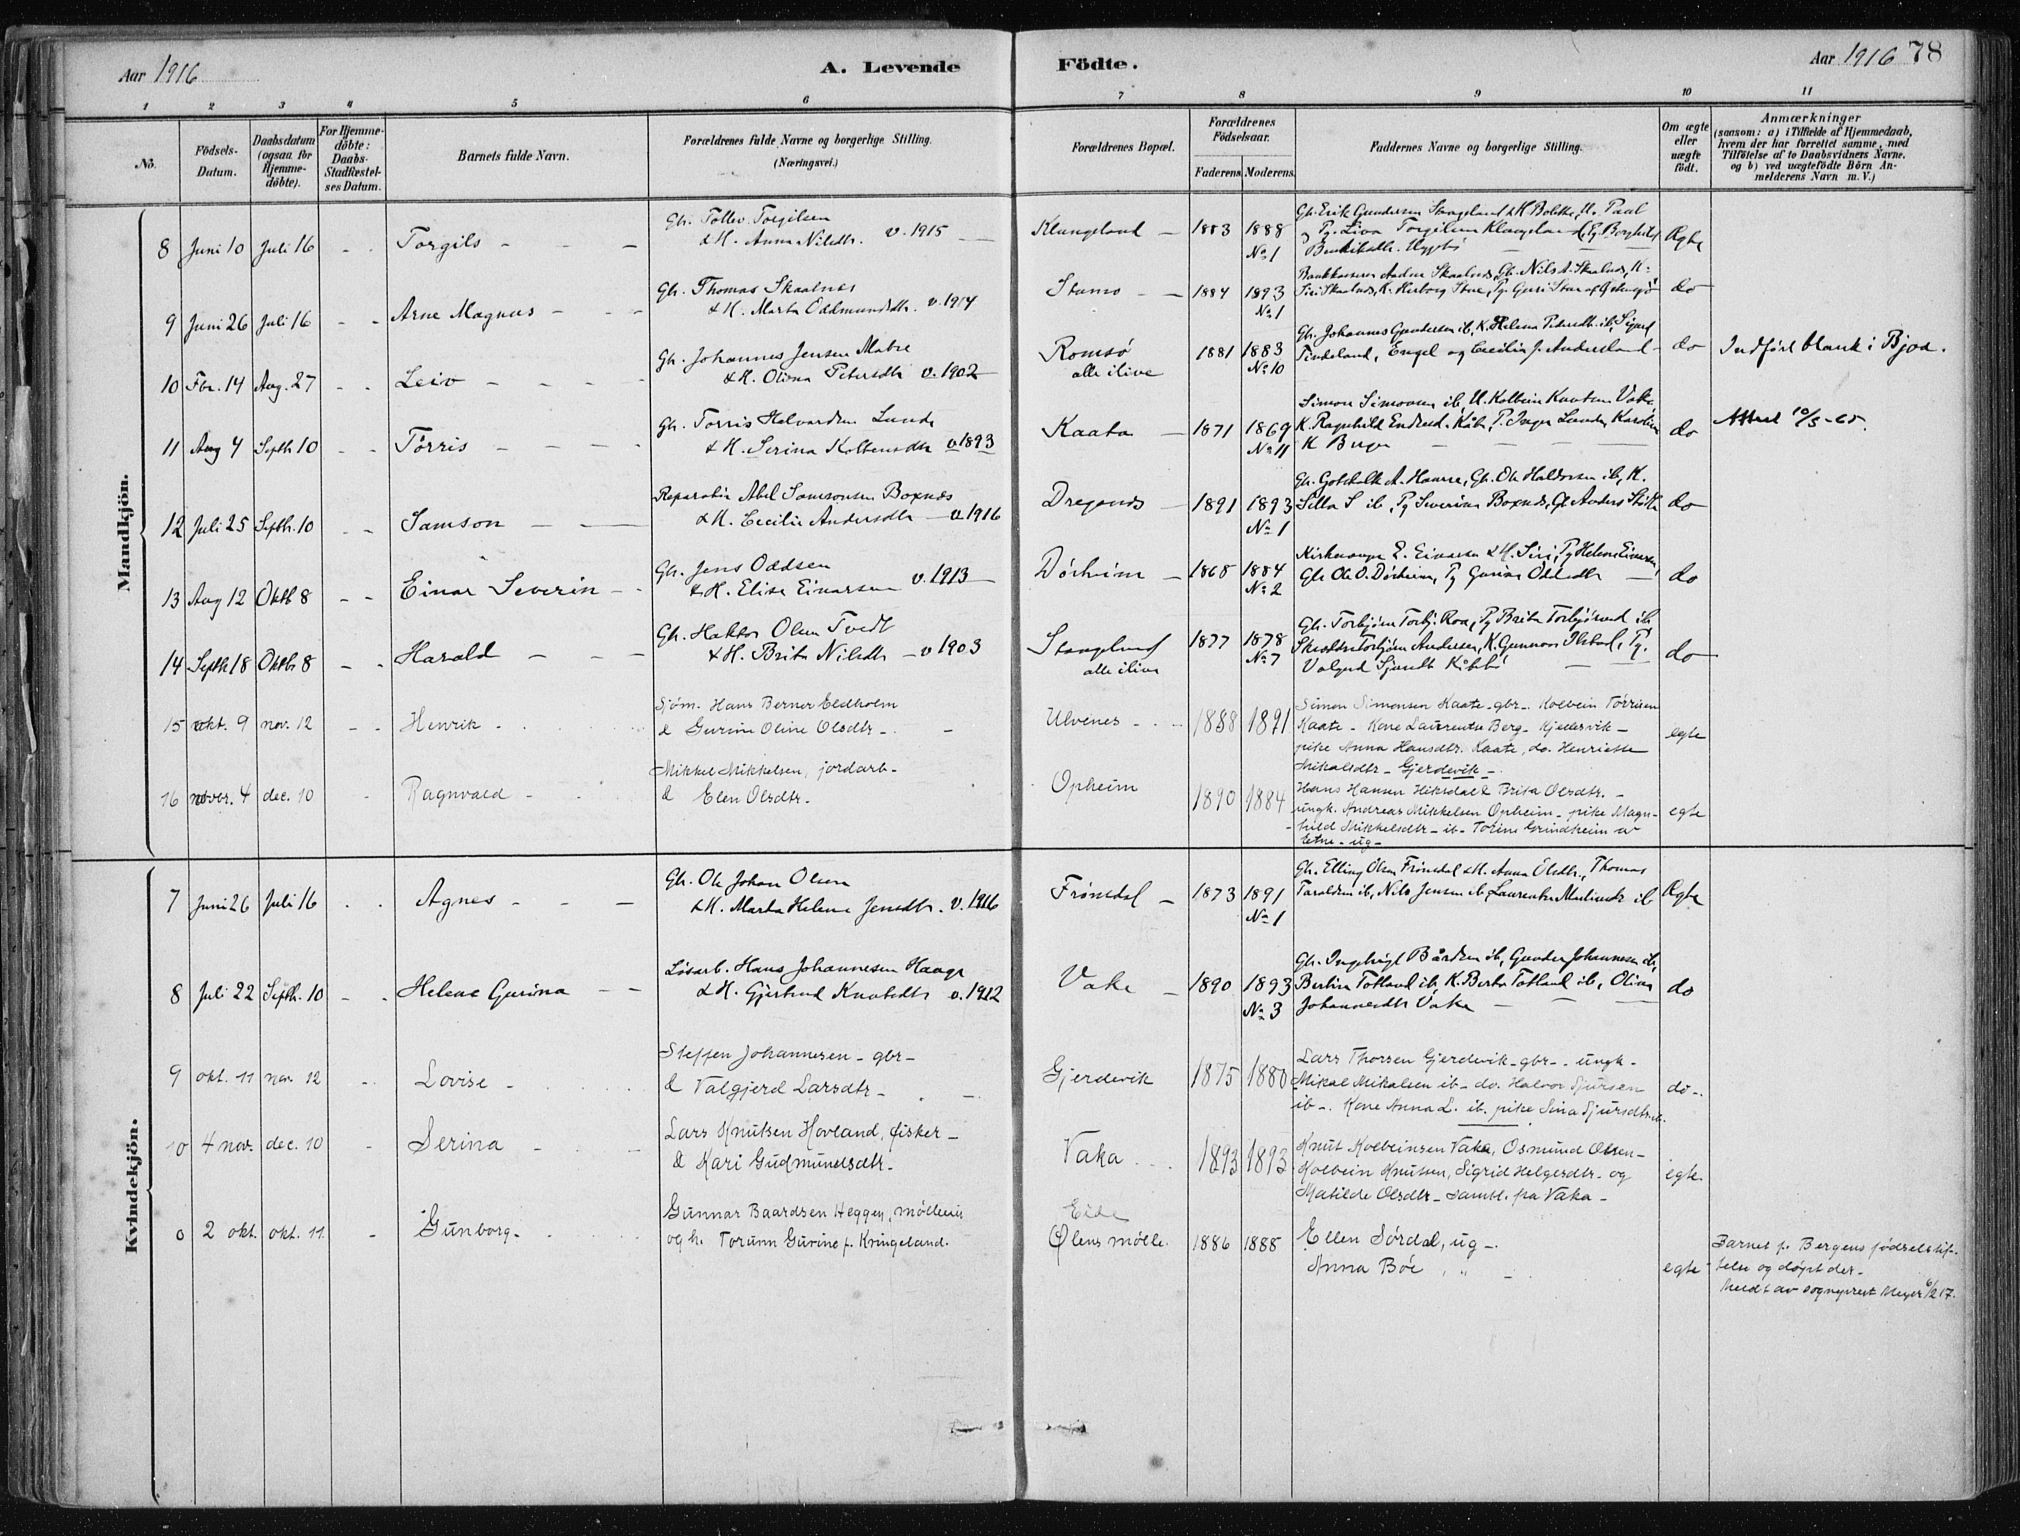 Aar 1916
A. Levende
Födte.
Aar 1916 78
1 2 3 4 5 6 7 8 9 10 11
No.
Födsels-
Datum.
Daabsdatum
(ogsaa for
Hjemme-
döbte).
For Hjemme-
döbte:
Daabs-
Stadfæstel-
ses Datum.
Barnets fulde Navn.
Forældrenes fulde Navne og borgerlige Stilling.
(Næringsvei.)
Forældrenes Bopæl.
Forældrenes
Födselsaar.
Faderens Moderens
Faddernes Navne og borgerlige Stilling.
Om ægte
eller
uægte
födt.
Anmærkninger
(saasom: a) i Tilfælde af Hjemmedaab,
hvem der har forrettet samme, med
Tilföielse af to Daabsvidners Navne,
og b) ved uægtefödte Börn An-
melderens Navn m. V.)
Mandkjön.
8 Juni 10 Juli 16 Torgils
Gh. Tollev Torgilsen
& H. Anna Nilsdtr. v. 1915
Klungeland 1883 1888
No 1
Gh. Erik Gundersen Stangeland & H. Bolette, U. Paul
og Pg. Liva Torgilsen Klungeland, Pg. Borghild
Ægte
9 Juni 26 Juli 16 Arne Magnus
Gh. Thomas Skaalnes
& H. Marta Oddmundsdtr. v. 1914
Stumo 1884 1893
No 1
do
10 Fbr. 14 Aug. 27 Leiv
Gh. Johannes Jensen Matre
& H. Olina Petersdtr v. 1902
Romsø
alle ilive
1881 1883
No 10
Gh. Johannes Gundersen ib, K. Helena Petersdtr. ib, Sigurd
Tindeland, Engel og Cecilia J. Andersland
do
Indført blank i Bjoa.
11 Aug 4 Septb 10 Tørris
Gh. Torris Halvardsen Lunde
& H. Serina Kolbensdtr v 1893
Kaata 1871 1869
No 11
Simon Simonsen ib, U. Kolbein Knutsen Vake
K. Berge
do
Attest 10/5-65.
12 Juli 25 Septb. 10 Samson
Reparatør Abel Samsonsen Boxnes
& H. Cecilie Andersdtr v. 1916
Dreganes 1891 1893
No 1
Gh. Gotskalk A. Haavre, Gh. Ole Haldorsen ib, K.
Silla S ib, Pg Severine Boxnes, Gh Anders
do
13 Aug 12 Oktb 8 Einar Severin
Gh. Jens Oddsen
& H. Elise Einarsen v. 1913
Dørheim 1868 1884
No 2
Kirkesanger E. Einarsen & H. Siri, Pg Helene Einarsen,
Gh Ole O. Dørheim, Pg Gurine Oddsdtr
do
14 Septb 18 Oktbr 8 Harald
Gh. Haktor Olsen Tvedt
& H. Brita Nilsdtr v 1903
Stangeland
alle ilive
1877 1878
No 7
Gh. Torbjørn Torbj. Roa, Pg Brita Torbjørnsd ib
Skrædder Torbjørn Andersen, K. Gunnor Ilstad, Pg.
do
15 okt. 9 nov. 12 Henrik
Sjøm. Hans Berner Eldholm
& Gurine Oline Olsdtr
Ulvenes 1888 1891
Simon Simonsen Kaate gbr. Kolbein Tørrisen
Kaate - Kone Laurentse Berg - Kjedesvik -
pike Anna Hansdtr. Kaate, do. Henriette
Mikalsdtr - Gjerdevik -
egte
16 novbr. 4 dec. 10 Ragnvald
Mikkel Mikkelsen, jordarb-
& Elen Olsdtr.
Opheim 1890 1884
Hans Hansen Hiksdal & Brita Olsdtr. -
ungk. Andreas Mikkelsen Opheim - pike Magn-
hild Mikkelsdtr - ib - Toline Grindheim av
Etne - ug -
egte
Kvindekjön.
7 Juni 26 Juli 16 Agnes
Gh. Ole Johan Olsen
& H. Marta Helene Jensdtr. v. 1916
Frønsdal 1873 1891
No 1
Gh. Elling Olsen Frønsdal & H. Anna Olsdtr., Thomas
Taraldsen ib, Nils Jensen ib, Laurentse ib
Ægte
8 Juli 22 Septb. 10 Helene Gurina
Løsarb. Hans Johannesen Haage
& H. Gjertrud Knutsdtr v. 1912
Vake 1890 1893
No 3
Gh. Ingebrigt Bårdsen ib, Gunder Johannesen ib,
Bertine Totland ib, K. Berta Totland ib, Olina
Johannesdtr Vake
do
9 okt. 11 nov. 12 Lovise
Steffen Johannesen - gbr -
& Valgjerd Larsdtr -
Gjerdevik 1875 1880
Lars Thorsen Gjerdevik - gbr - ungk -
Mikal Mikalsen ib - do. Halvor Sjursen
ib - Kone Anna L. ib. pike Sina Sjursdtr ib.
do -
10 4 nov. dec. 10 Serina
Lars Knutsen Hovland, fisker -
& Kari Gudmundsdtr -
Vaka 1893 1893
Knut Kolbeinsen Vaka, Osmund Olsen -
Kolbein Knutsen, Sigrid Helgesdtr - og
Matilde Olsdtr - samtl. fra Vaka -
egte
0 2 okt. okt. 11 Gunborg
Gunnar Baardsen Heggen, mølleeier
og h. Torunn Gurine f. Kringeland.
Eide
Ølens mølle. 1886 1888
Ellen Sørdal, ug -
Anna Bøe, "
egte
Barnet f. Bergens fødselsstif-
telse og døpt der -
Meldt av sogneprest Meyer 6/2 17.